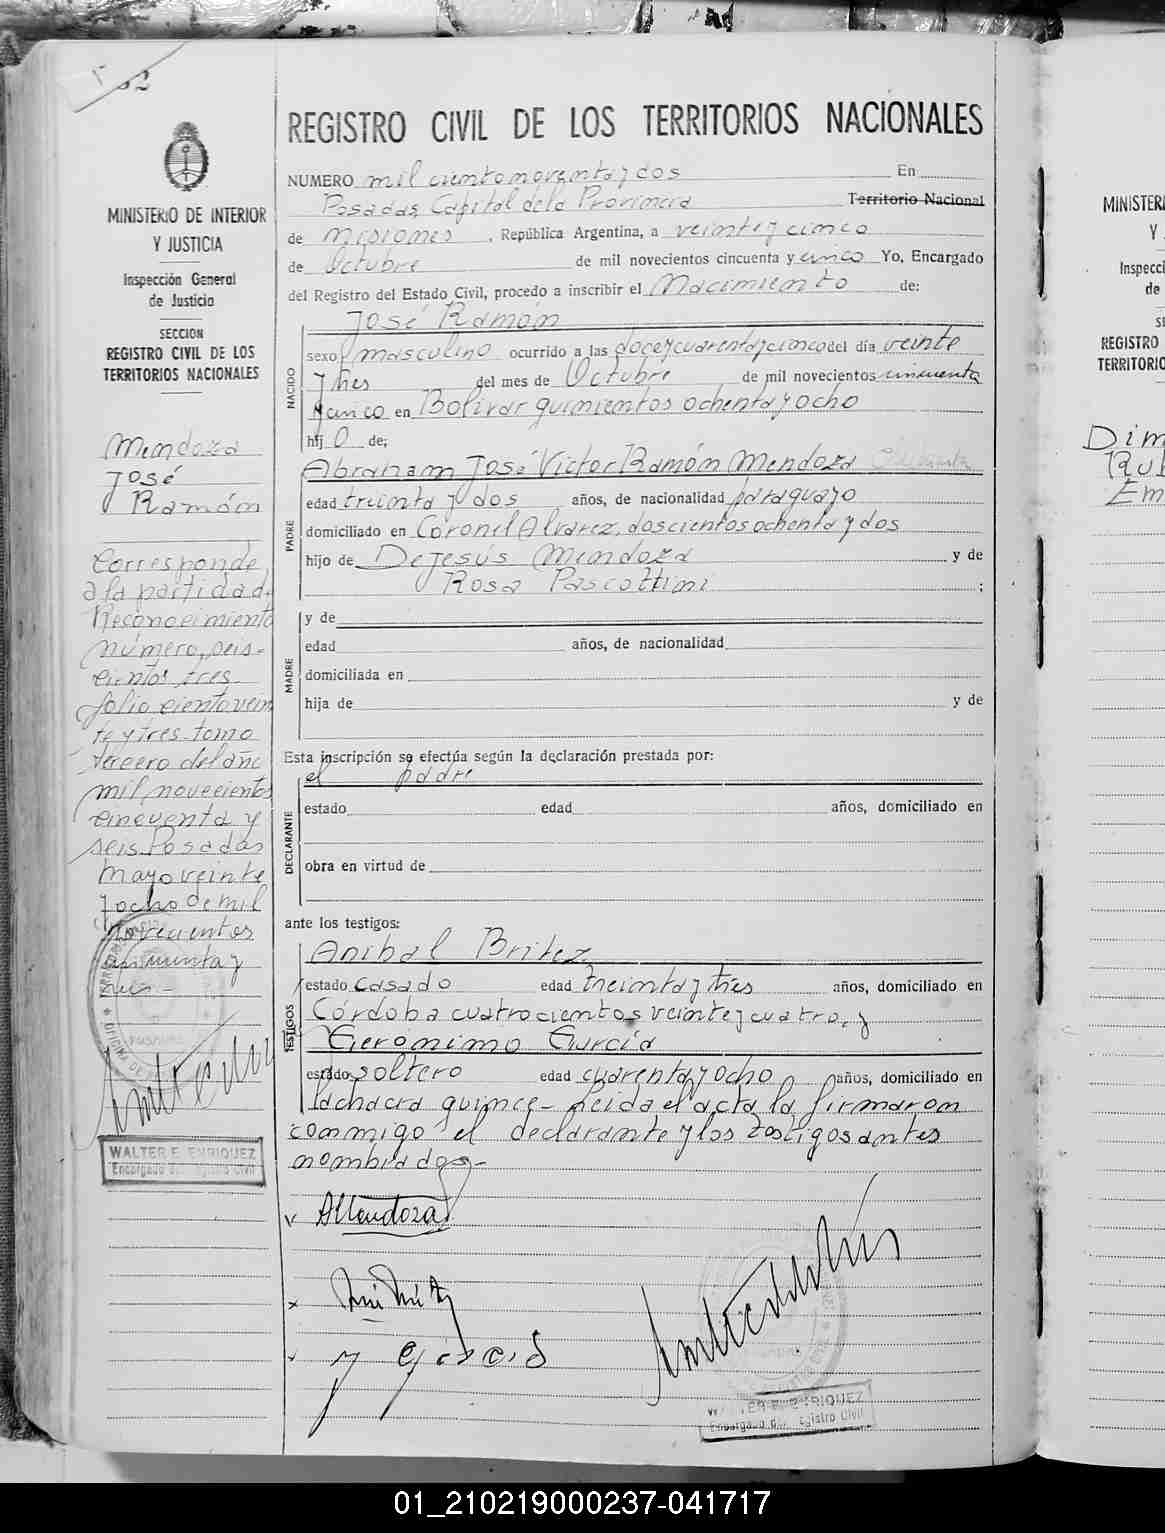 62
MINISTERIO DE INTERIOR
Y JUSTICIA
Inspección General
de Justicia
SECCION
REGISTRO CIVIL DE LOS
TERRITORIOS NACIONALES
Mendoza
José
Ramón
Corresponde
a la partida d.
Reconocimiento
número, seis-
cientos tres-
folio ciento vein
te y tres-tomo
tercero del año
mil novecientos
cincuenta y
seis. Posadas
mayo veinte
y ocho de mil
novecientos
cincuenta y
seis-
WALTER E. ENRIQUEZ
Encargado del Registro Civil
REGISTRO CIVIL DE LOS TERRITORIOS NACIONALES
NUMERO mil ciento noventa y dos En
Posadas, Capital de la Provincia Territorio Nacional
de Misiones, República Argentina, a veinte y cinco
de Octubre de mil novecientos cincuenta y cinco Yo, Encargado
del Registro del Estado Civil, procedo a inscribir el Nacimiento de:
NACIDO
José Ramón
sexo masculino ocurrido a las doce y cuarenta y cinco del día veinte
y tres del mes de Octubre de mil novecientos cincuenta
y cinco en Bolívar quinientos ochenta y ocho
hij o de;
PADRE
Abraham José Victor Ramón Mendoza
edad treinta y dos años, de nacionalidad paraguayo
domiciliado en Coronel Alvarez, doscientos ochenta y dos
hijo de De Jesús Mendoza y de
Rosa Pascottini ;
MADRE
y de
edad años, de nacionalidad
domiciliada en
hija de y de
Esta inscripción se efectúa según la declaración prestada por:
DECLARANTE
el padre
estado edad años, domiciliado en
obra en virtud de
ante los testigos:
TESTIGOS
Anibal Britez
estado casado edad treinta y tres años, domiciliado en
Córdoba cuatrocientos veinte y cuatro, y
Gerónimo García
estado soltero edad cuarenta y ocho años, domiciliado en
la chacra quince- Leida el acta la firmaron
conmigo el declarante y los testigos antes
nombrados-
AMendoza
WALTER E. ENRIQUEZ
Encargado del Registro Civil
MINISTERI
Y
Inspecci
de
SE
REGISTRO
TERRITORIO
Dim
Rub
Em
01_210219000237-041717